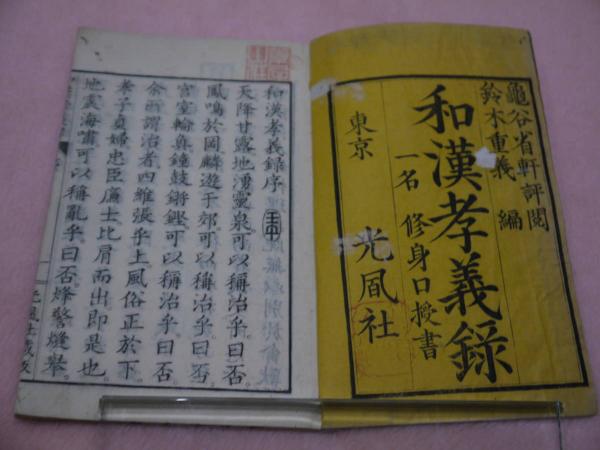 龜谷省軒評閲
鈴木重義 編
和漢孝義録
一名 修身口授書
東京 光風社
和漢孝義錄序
天降甘露地湧靈泉可以稱治乎曰否
鳳鳴於岡麟遊于郊可以稱治乎曰否
宮室輪奐鐘鼓鏘鏗可以稱治乎曰否
余所謂治者四維張乎上風俗正於下
孝子貞婦忠臣廉士比肩而出即是也
地震海嘯可以稱亂乎曰否烽警燧舉